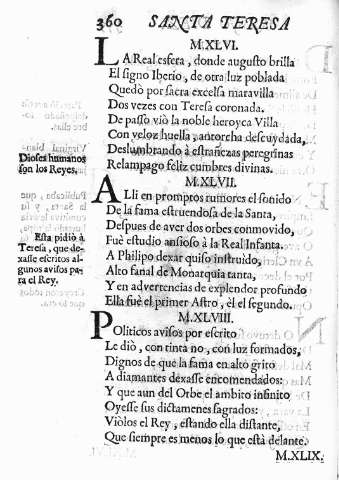 360 SANTA TERESA
M.XLVI.
LA Real esfera, donde augusto brilla
El signo Iberio, de otra luz poblada
Quedò por sacra excelsa maravilla
Dos vezes con Teresa coronada.
De passo viò la noble heroyca Villa
Con veloz huella, antorcha descuydada,
Deslumbrando à estrañezas peregrinas
Relampago feliz cumbres divinas.
Dioses humanos
son los Reyes.
M.XLVII.
ALli en promptos rumores el sonido
De la fama estruendosa de la Santa,
Despues de aver dos orbes conmovido,
Fuè estudio ansioso à la Real Infanta.
A Philipo dexar quiso instruido,
Alto fanal de Monarquia tanta,
Y en advertencias de explendor profundo
Ella fuè el primer Astro, èl el segundo.
Esta pidiò à
Teresa, que de-
xasse escritos al-
gunos avisos pa-
ra el Rey.
M.XLVIII.
POliticos avisos por escrito
Le diò, con tinta no, con luz formados,
Dignos de que la fama en alto grito
A diamantes dexasse encomendados:
Y que aun del Orbe el ambito infinito
Oyesse sus dictamenes sagrados:
Viòlos el Rey, estando ella distante,
Que siempre es menos lo que està delante.
M.XLIX.